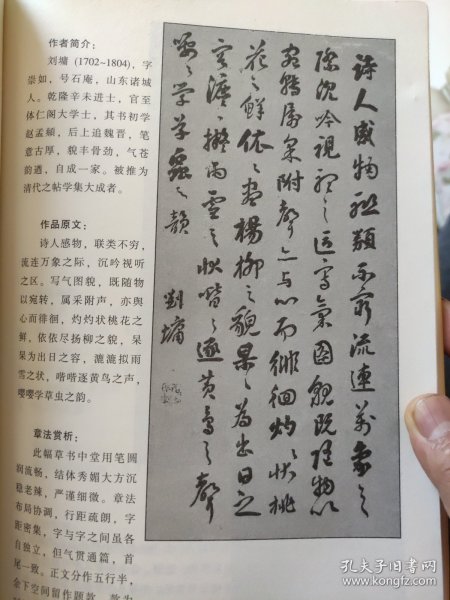 作者简介：
刘墉（1702~1804），字
崇如，号石庵，山东诸城
人。乾隆辛未进士，官至
体仁阁大学士，其书初学
赵孟頫，后上追魏晋，笔
意古厚，貌丰骨劲，气苍
韵遒，自成一家。被推为
清代之帖学集大成者。
作品原文：
诗人感物，联类不穷，
流连万象之际，沉吟视听
之区。写气图貌，既随物
以宛转，属采附声，亦舆
心而徘徊，灼灼状桃花之
鲜，依依尽扬柳之貌，杲
杲为出日之容，漉漉拟雨
雪之状，喈喈逐黄鸟之声，
嘤嘤学草虫之韵。
章法赏析：
此幅草书中堂用笔圆
润流畅，结体秀媚大方沉
稳老辣，严谨细微。章法
布局协调，行距疏朗，字
距密集，字与字之间虽各
自独立，但气贯通篇，首
尾一致。正文分作五行半，
余下空间留作题款，款为
詩人感物聯類不窮流連萬象之
際沉吟視聽之區寫氣圖貌既隨物以
宛轉屬采附聲亦與心而徘徊灼灼狀桃
花之鮮依依盡楊柳之貌杲杲為出日之
容瀌瀌擬雨雪之狀喈喈逐黃鳥之聲
嚶嚶學草蟲之韻 劉墉
孔夫子旧书网
www.kongfz.com